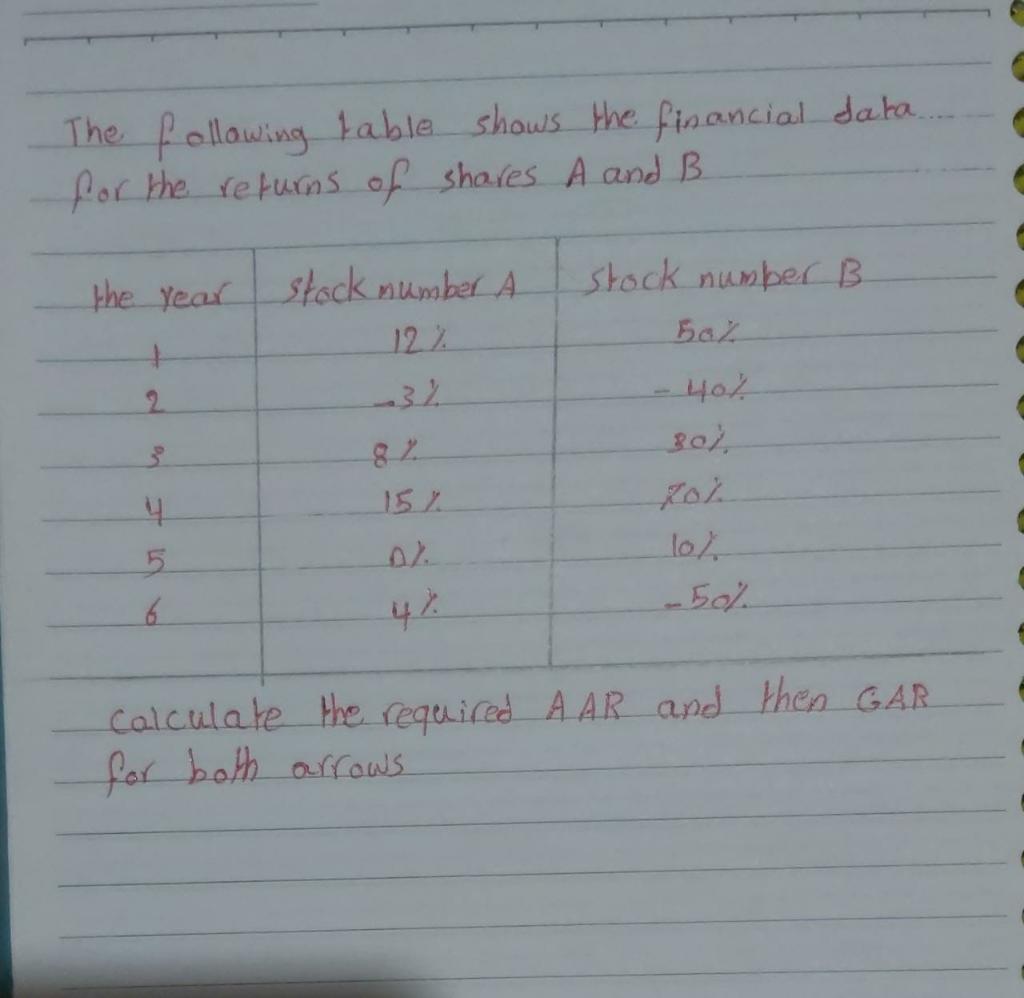 The following table shows the financial data....
for the returns of shares A and B
the year stock number A stock number B
1 12% 50%
2 -3% -40%
3 8% 80%
4 15% 70%
5 0% 10%
6 4% -50%
calculate the required AAR and then GAR
for both arrows